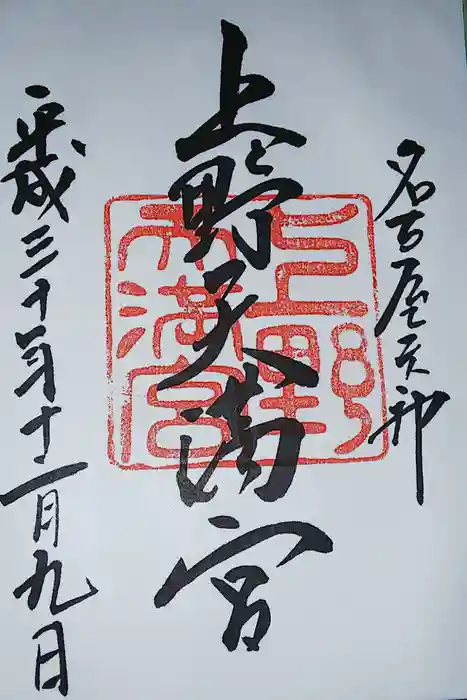 名古屋天神
上野天満宮
上野
天満宮
平成三十年十一月九日